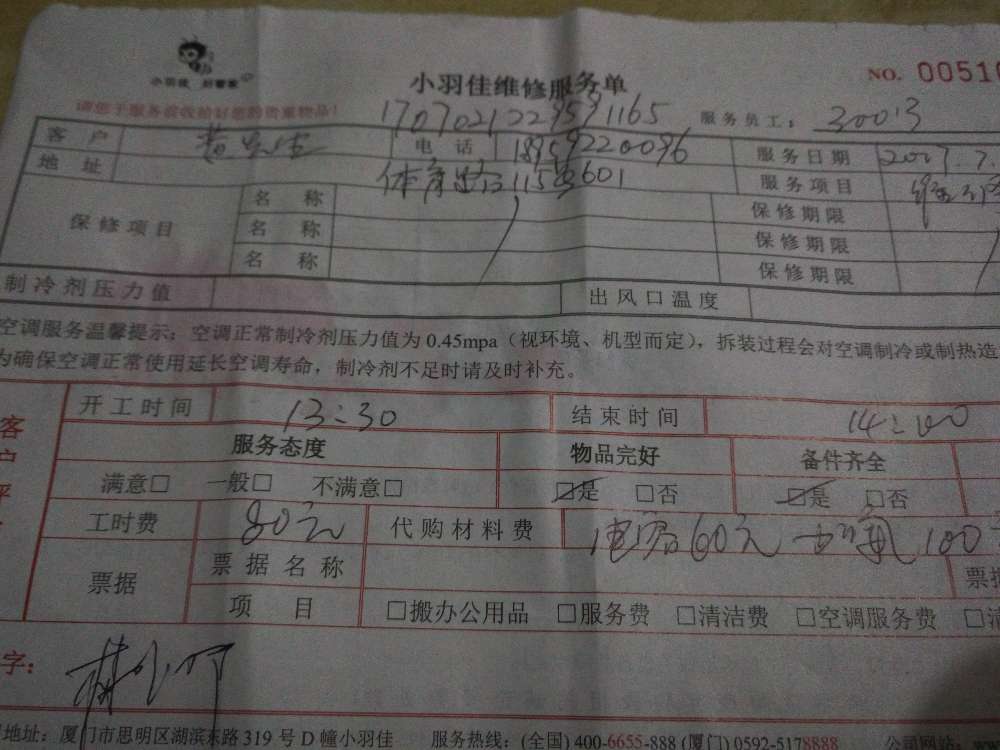 小羽佳 好管家
小羽佳维修服务单
NO. 00510
请您于服务前收拾好您的贵重物品!
1707021229591165
服务员工: 30013
客户
电话 18959220096
服务日期 2017.7.
地址 体育路115 601
服务项目
保修项目 名称 保修期限
名称 保修期限
名称 保修期限
制冷剂压力值 出风口温度
空调服务温馨提示:空调正常制冷剂压力值为0.45mpa(视环境、机型而定),拆装过程会对空调制冷或制热造
为确保空调正常使用延长空调寿命,制冷剂不足时请及时补充。
开工时间 13:30 结束时间 14:00
客户评
服务态度 物品完好 备件齐全
满意□ 一般□ 不满意□ □是 □否 □是 □否
工时费 80元 代购材料费 电容60元 加氟100
票据 票据名称 票据
项目 □搬办公用品 □服务费 □清洁费 □空调服务费
字:
地址:厦门市思明区湖滨东路319号D幢小羽佳 服务热线:(全国)400-6655-888(厦门)0592-5178888 公司网站: